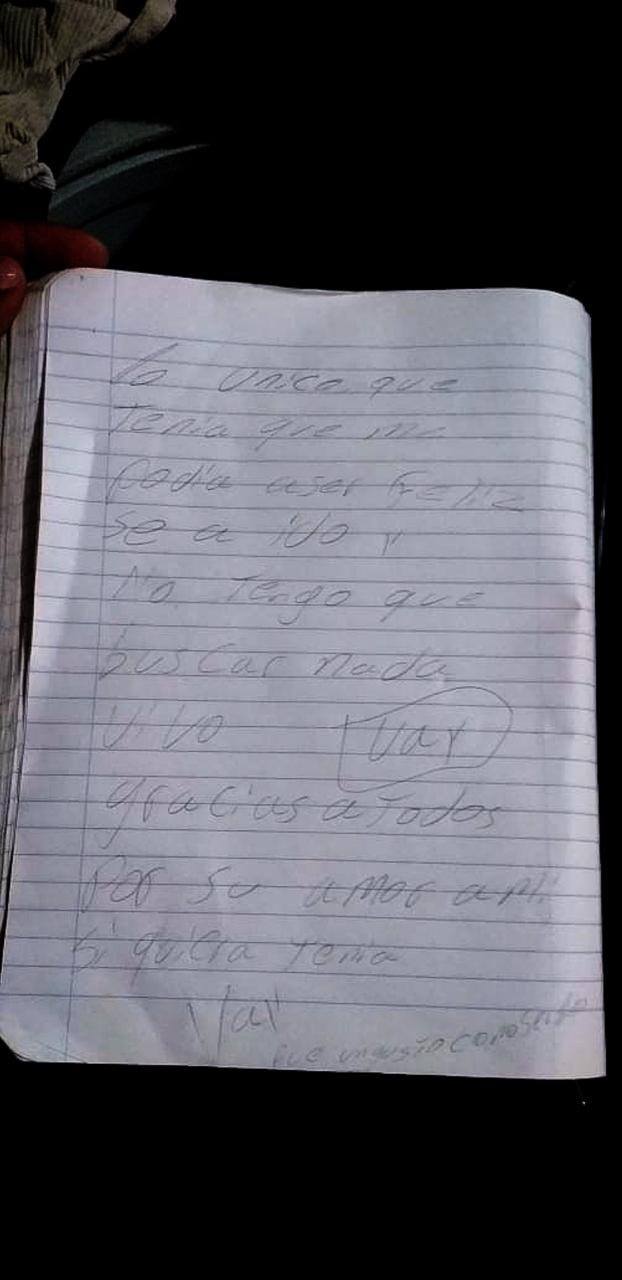 Lo unico que
Tenia que me
podia aser Feliz
se a ido y
No Tengo que
buscar nada
vivo
Vay
gracias a Todos
Por su amor a mi
Si quiera Tenia
Vay
fue un gusto conoserlo